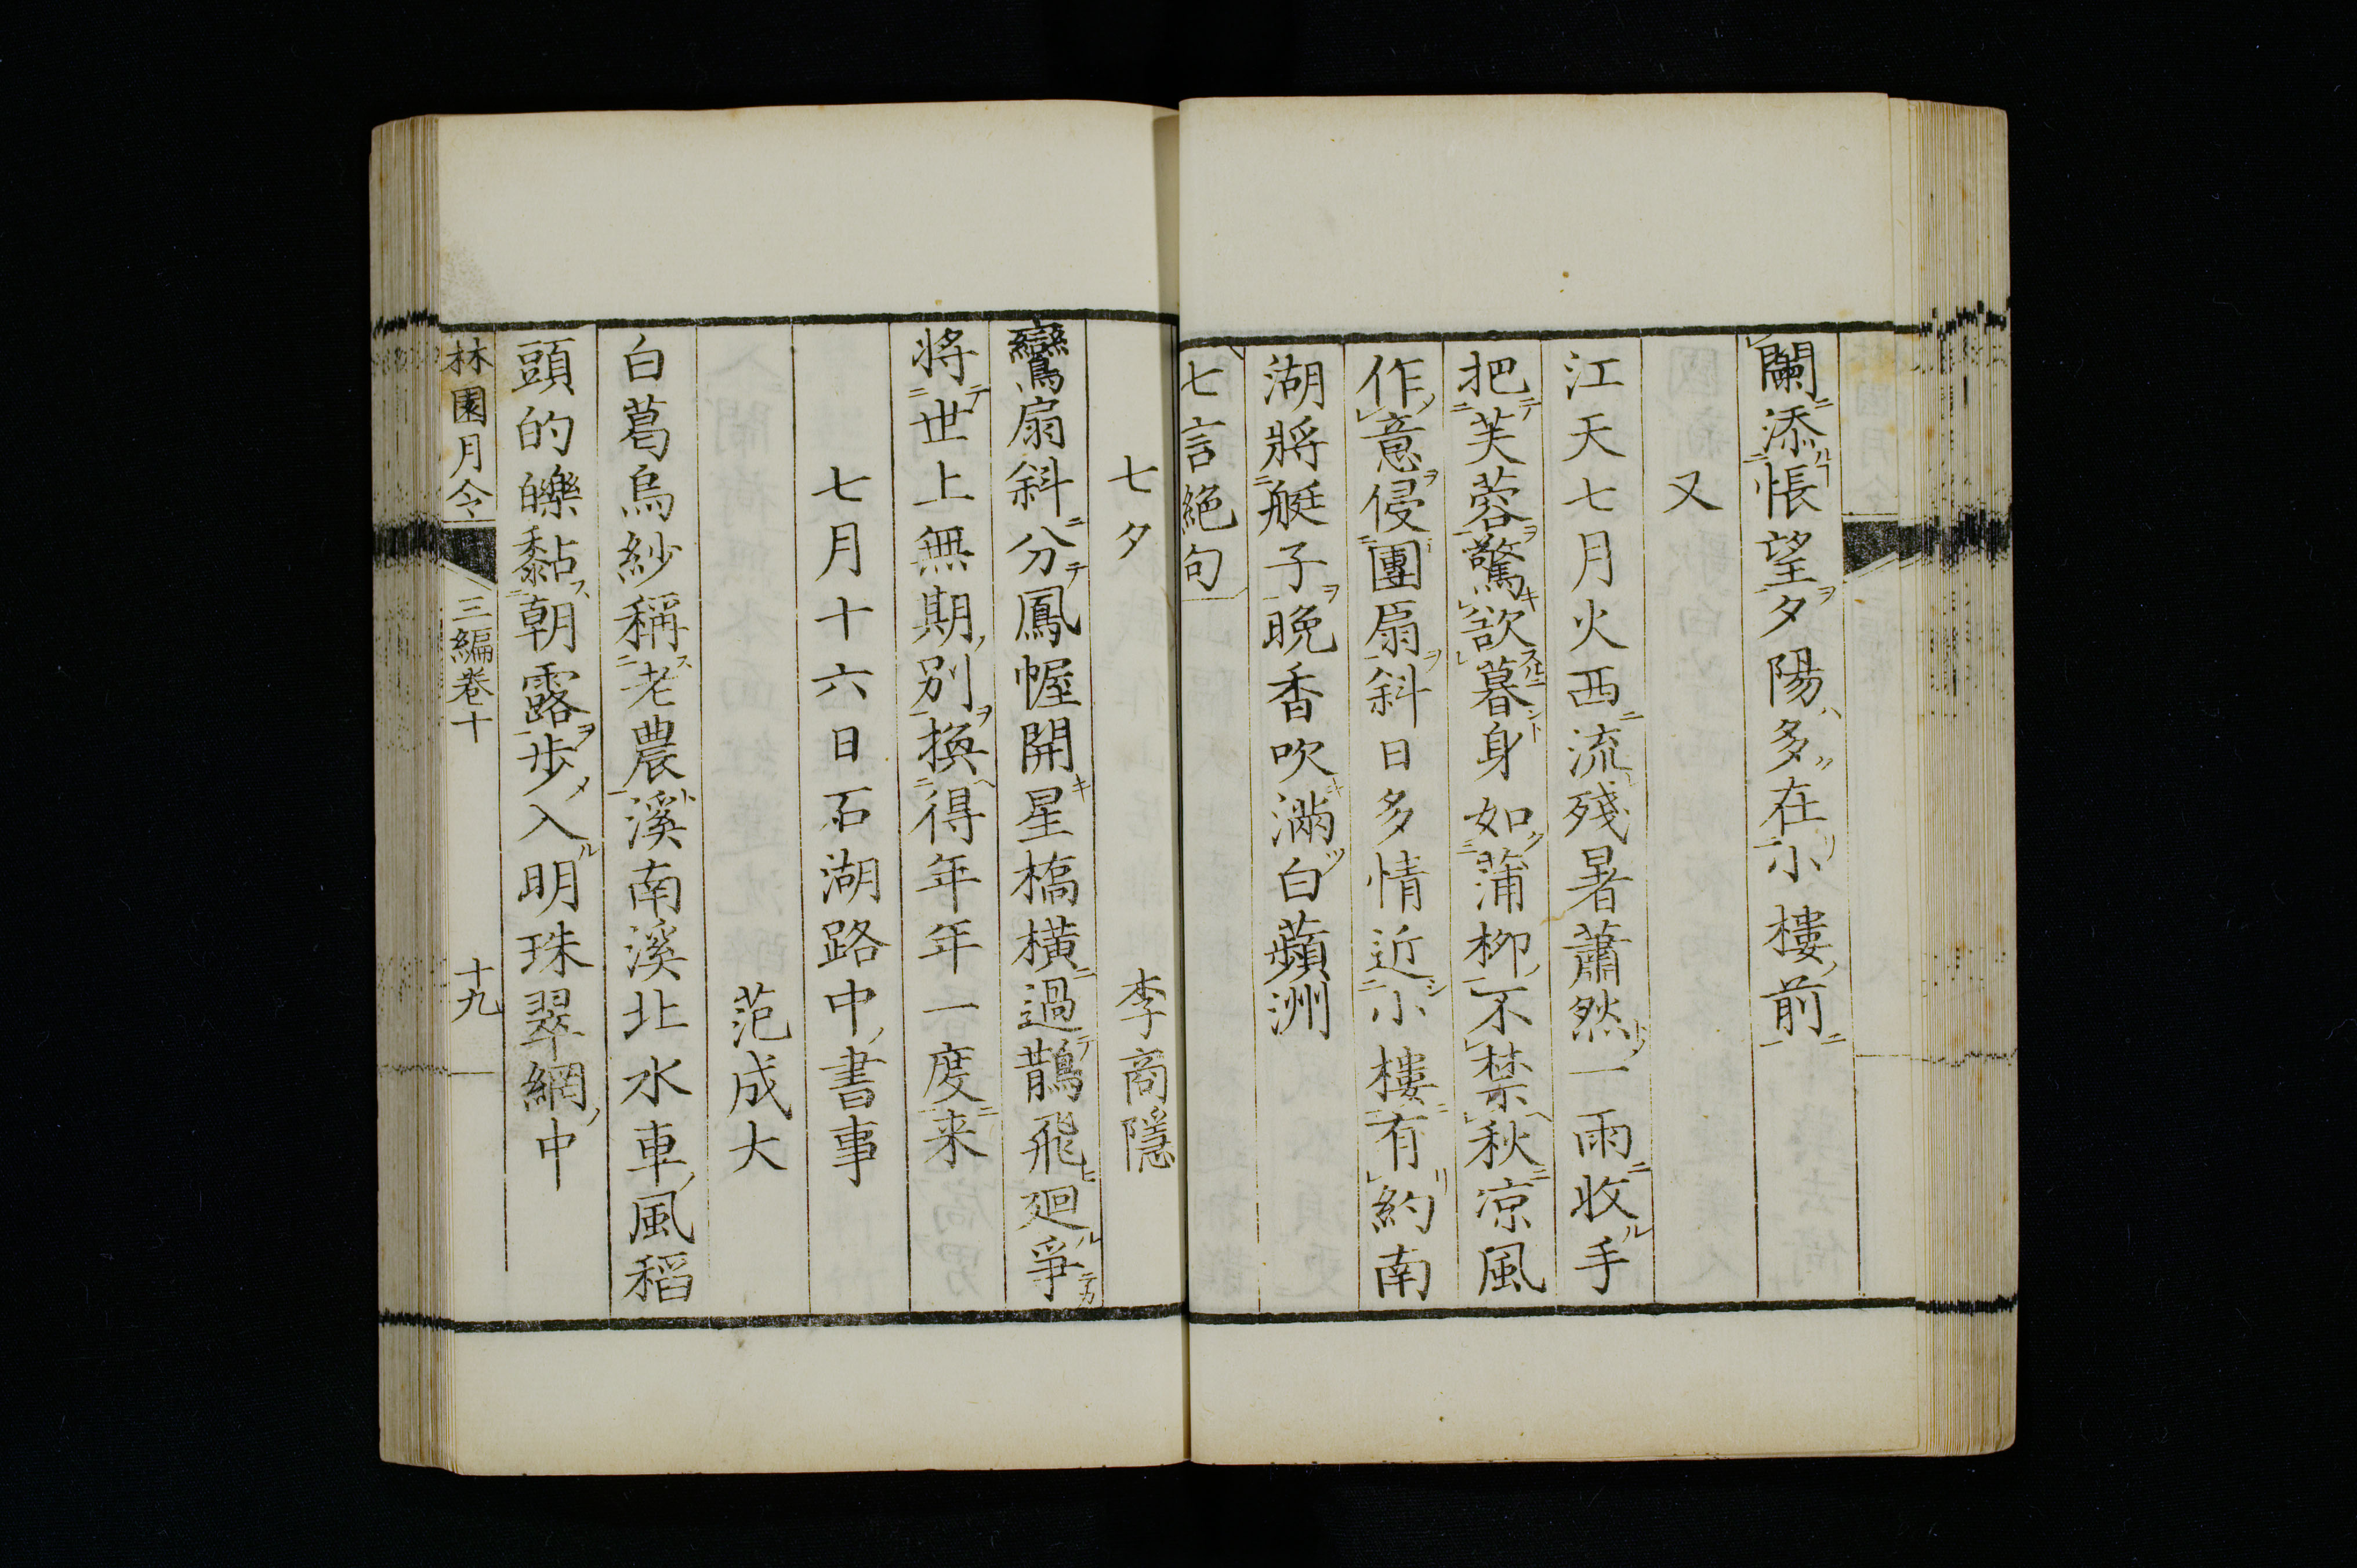 闌添悵望夕陽多在小樓前
又
江天七月火西流殘暑蕭然一雨收手
把芙蓉驚欲暮身如蒲柳不禁秋凉風
作意侵團扇斜日多情近小樓有約南
湖將艇子晩香吹滿白蘋洲
七言絕句
七夕 李商隱
鸞扇斜分鳳幄開星橋橫過鵲飛廻爭
將世上無期別換得年年一度来
七月十六日石湖路中書事
范成大
白葛烏紗稱老農溪南溪北水車風稻
頭的皪黏朝露步入明珠翠網中
林園月令 三編卷十 十九